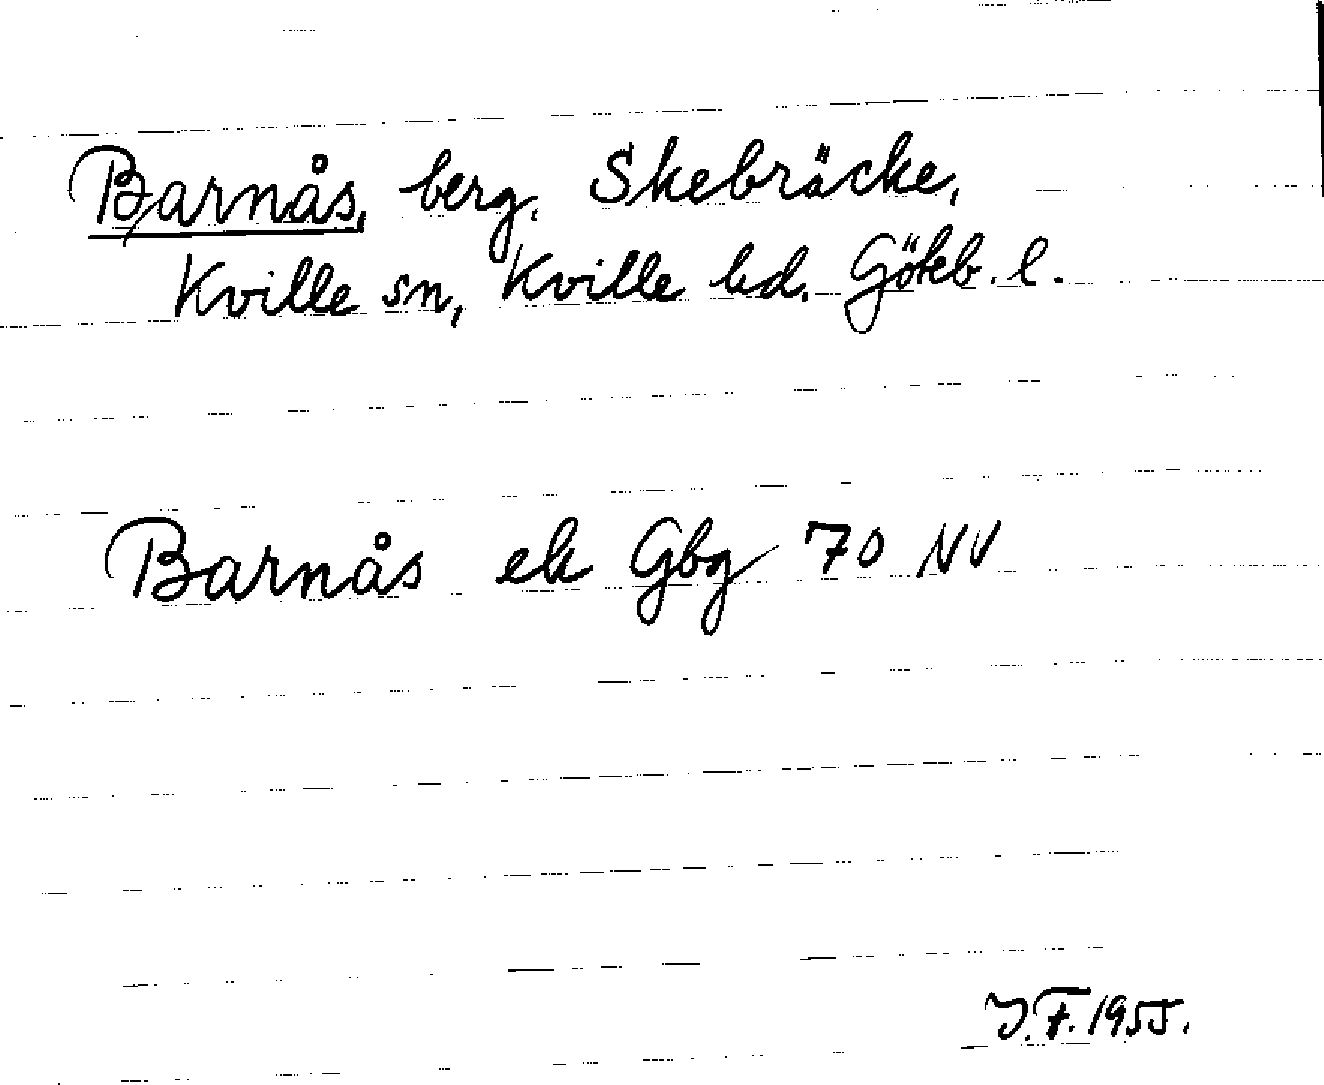 Barnås, berg. Skebräcke,
Kville sn, Kville hd. Göteb. l.
Barnås ek Gbg 70 NV
J.F. 1955.